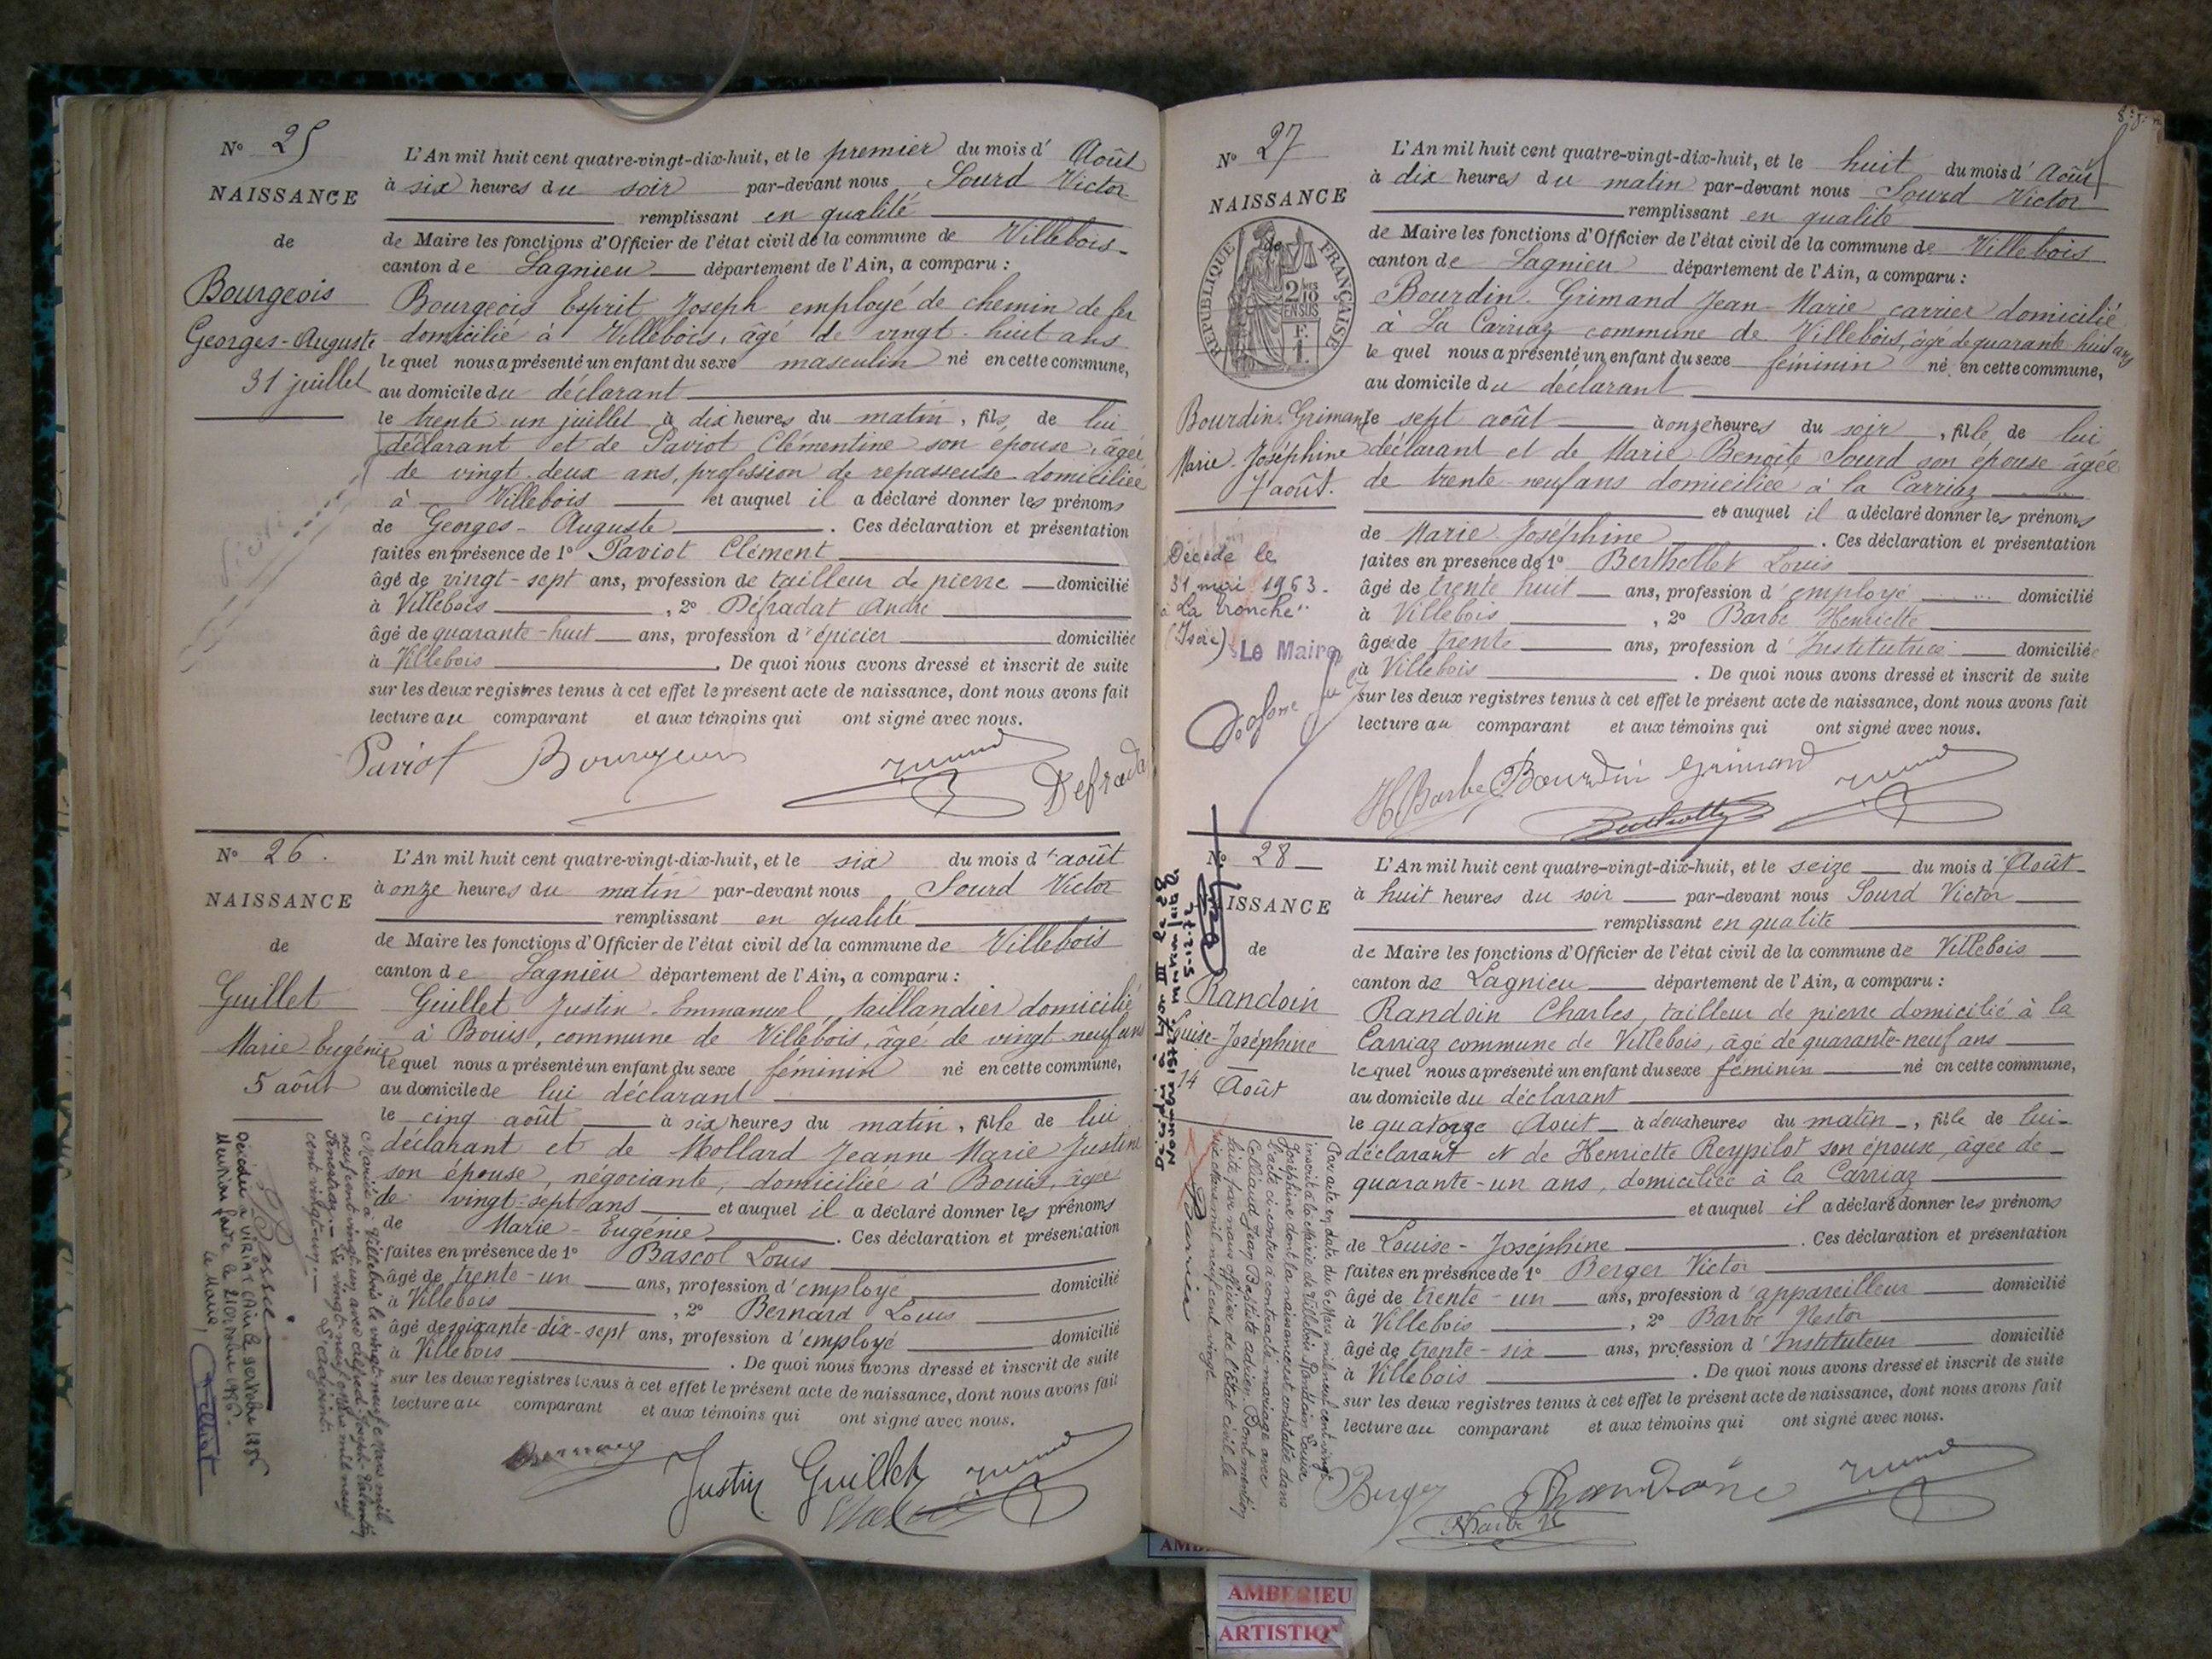 N° 25
NAISSANCE
de
Bourgeois
Georges-Auguste
31 juillet
L'An mil huit cent quatre-vingt-dix-huit, et le premier du mois d' Août
à six heures du soir par-devant nous Sourd Victor
remplissant en qualité
de Maire les fonctions d'Officier de l'état civil de la commune de Villebois
canton de Lagnieu département de l'Ain, a comparu :
Bourgeois Esprit Joseph employé de chemin de fer
domicilié à Villebois, âgé de vingt-huit ans
lequel nous a présenté un enfant du sexe masculin né en cette commune,
au domicile du déclarant
le trente un juillet à dix heures du matin, fils de lui
déclarant et de Paviot Clémentine son épouse, âgée
de vingt-deux ans, profession de repasseuse domiciliée
à Villebois et auquel il a déclaré donner les prénoms
de Georges-Auguste. Ces déclaration et présentation
faites en présence de 1° Paviot Clément
âgé de vingt-sept ans, profession de tailleur de pierre domicilié
à Villebois, 2° Défradat André
âgé de quarante-huit ans, profession d'épicier domicilié
à Villebois. De quoi nous avons dressé et inscrit de suite
sur les deux registres tenus à cet effet le présent acte de naissance, dont nous avons fait
lecture au comparant et aux témoins qui ont signé avec nous.
Paviot Bourgeois Defradat
N° 26.
NAISSANCE
de
Guillet
Marie Eugénie
5 août
L'An mil huit cent quatre-vingt-dix-huit, et le six du mois d'août
à onze heures du matin par-devant nous Sourd Victor
remplissant en qualité
de Maire les fonctions d'Officier de l'état civil de la commune de Villebois
canton de Lagnieu département de l'Ain, a comparu :
Guillet Justin-Emmanuel, taillandier domicilié
à Bouis, commune de Villebois, âgé de vingt-neuf ans
lequel nous a présenté un enfant du sexe féminin né en cette commune,
au domicile de lui déclarant
le cinq août à six heures du matin, fille de lui
déclarant et de Mollard Jeanne Marie Justine
son épouse, négociante, domiciliée à Bouis, âgée
de vingt-sept ans et auquel il a déclaré donner les prénoms
de Marie-Eugénie. Ces déclaration et présentation
faites en présence de 1° Bascol Louis
âgé de trente-un ans, profession d'employé domicilié
à Villebois, 2° Bernard Louis
âgé de soixante-dix-sept ans, profession d'employé domicilié
à Villebois. De quoi nous avons dressé et inscrit de suite
sur les deux registres tenus à cet effet le présent acte de naissance, dont nous avons fait
lecture au comparant et aux témoins qui ont signé avec nous.
Justin Guillet
Mariée à Villebois le vingt-neuf Mars mil
neuf cent vingt-un avec Alfred-Joseph-Valentin
cent vingt-un.
L'adjoint.
Décédée à VIRIAT (Ain) le
le Maire,
N° 27
NAISSANCE
de
RÉPUBLIQUE FRANÇAISE
2/10 EN SUS
Bourdin-Grimand
Marie-Joséphine
7 août.
Décédé le
31 mai 1963
à "La Tronche"
(Isère) Le Maire
L'An mil huit cent quatre-vingt-dix-huit, et le huit du mois d'Août
à dix heures du matin par-devant nous Sourd Victor
remplissant en qualité
de Maire les fonctions d'Officier de l'état civil de la commune de Villebois
canton de Lagnieu département de l'Ain, a comparu :
Bourdin-Grimand Jean-Marie carrier domicilié
à La Carriaz commune de Villebois, âgé de quarante huit ans
lequel nous a présenté un enfant du sexe féminin né en cette commune,
au domicile du déclarant
le sept août à onze heures du soir, fille de lui
déclarant et de Marie Benoîte Sourd son épouse âgée
de trente-neuf ans domiciliée à la Carriaz
et auquel il a déclaré donner les prénoms
de Marie-Joséphine. Ces déclaration et présentation
faites en présence de 1° Berthollet Louis
âgé de trente huit ans, profession d'employé domicilié
à Villebois, 2° Barbe Henriette
âgée de trente ans, profession d'Institutrice domiciliée
à Villebois. De quoi nous avons dressé et inscrit de suite
sur les deux registres tenus à cet effet le présent acte de naissance, dont nous avons fait
lecture au comparant et aux témoins qui ont signé avec nous.
H Barbe Bourdin Grimand
N° 28
NAISSANCE
de
Randoin
Louise-Joséphine
14 Août
L'An mil huit cent quatre-vingt-dix-huit, et le seize du mois d'Août
à huit heures du soir par-devant nous Sourd Victor
remplissant en qualité
de Maire les fonctions d'Officier de l'état civil de la commune de Villebois
canton de Lagnieu département de l'Ain, a comparu :
Randoin Charles, tailleur de pierre domicilié à la
Carriaz commune de Villebois, âgé de quarante-neuf ans
lequel nous a présenté un enfant du sexe féminin né en cette commune,
au domicile du déclarant
le quatorze Août à deux heures du matin, fille de lui-
déclarant et de Henriette Reypilot son épouse, âgée de
quarante-un ans, domiciliée à la Carriaz
et auquel il a déclaré donner les prénoms
de Louise-Joséphine. Ces déclaration et présentation
faites en présence de 1° Berger Victor
âgé de trente-un ans, profession d'appareilleur domicilié
à Villebois, 2° Barbe Nestor
âgé de trente-six ans, profession d'Instituteur domicilié
à Villebois. De quoi nous avons dressé et inscrit de suite
sur les deux registres tenus à cet effet le présent acte de naissance, dont nous avons fait
lecture au comparant et aux témoins qui ont signé avec nous.
Berger
Barbe N
Par acte en date du 6 Mars mil neuf cent vingt
inscrit à la Mairie de Villebois, Randoin Louise
Joséphine dont la naissance est constatée dans
l'acte ci-contre a contracté mariage avec
Jean Baptiste Adrien. Dont mention
faite par nous officier de l'état civil le
mil neuf cent vingt.
AMBERIEU
ARTISTIQ